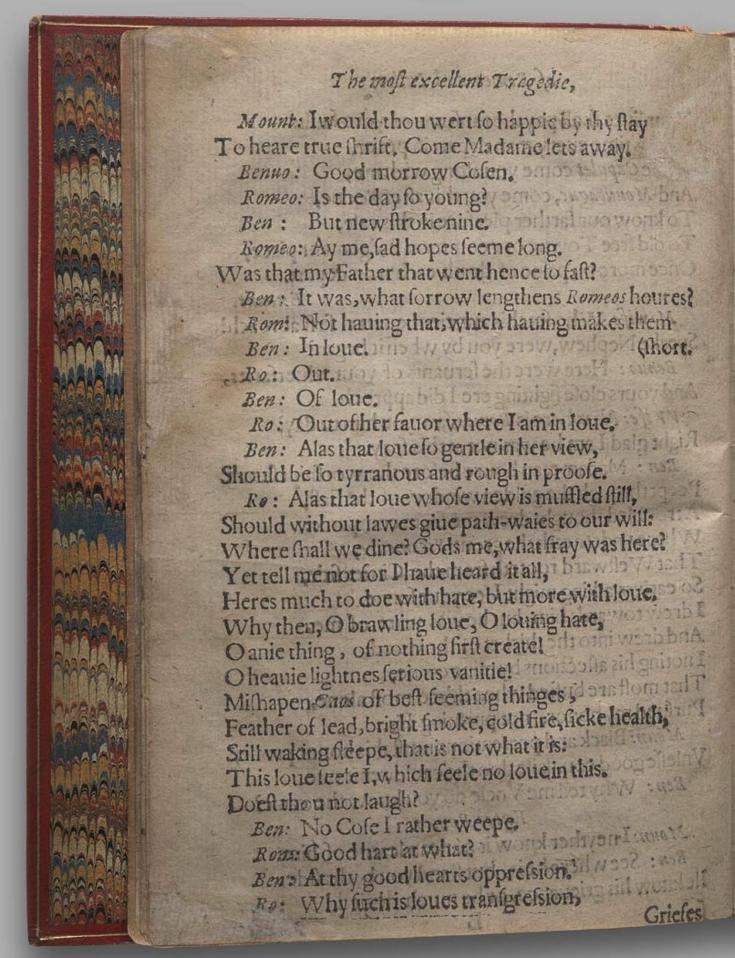 The moſt excellent Tragedie,
Mount: I would thou wert ſo happie by thy ſtay
To heare true ſhrift. Come Madame lets away.
Benuo: Good morrow Coſen.
Romeo: Is the day ſo young?
Ben: But new ſtroke nine.
Romeo: Ay me, ſad hopes ſeeme long.
Was that my Father that went hence ſo faſt?
Ben: It was, what ſorrow lengthens Romeos houres?
Rom: Not hauing that, which hauing makes them
Ben: In loue. (ſhort.
Ro: Out.
Ben: Of loue.
Ro: Out of her fauor where I am in loue.
Ben: Alas that loue ſo gentle in her view,
Should be ſo tyrranous and rough in proofe.
Ro: Alas that loue whoſe view is muffled ſtill,
Should without lawes giue path-waies to our will:
Where ſhall we dine? Gods me, what fray was here?
Yet tell me not for I haue heard it all,
Heres much to doe with hate, but more with loue.
Why then, O brawling loue, O louing hate,
O anie thing, of nothing firſt create!
O heauie lightnes ſerious vanitie!
Miſhapen Caos of beſt ſeeming thinges,
Feather of lead, bright ſmoke, cold fire, ſicke health,
Still waking ſleepe, that is not what it is:
This loue feele I, which feele no loue in this.
Doeſt thou not laugh?
Ben: No Coſe I rather weepe.
Rom: Good hart at what?
Ben: At thy good hearts oppreſsion.
Ro: Why ſuch is loues tranſgreſsion,
Griefes